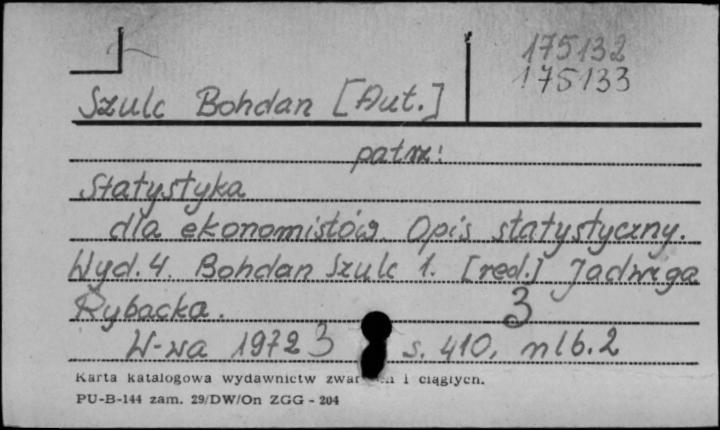 175132
175133
Szulc Bohdan [Aut.]
patrz:
Statystyka
dla ekonomistów. Opis statystyczny.
Wyd. 4. Bohdan Szulc 1. [red.] Jadwiga
Rybacka. 3
W-wa 1972 3 s. 410, nlb. 2
Karta katalogowa wydawnictw i ciągłych.
PU-B-144 zam. 29/DW/On ZGG - 204